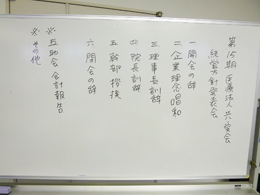 第15期 医療法人共愛会
経営方針発表会
一 開会の辞
二 企業理念唱和
三 理事長訓辞
四 院長訓辞
五 幹部挨拶
六 閉会の辞
※ 互助会会計報告
※ その他